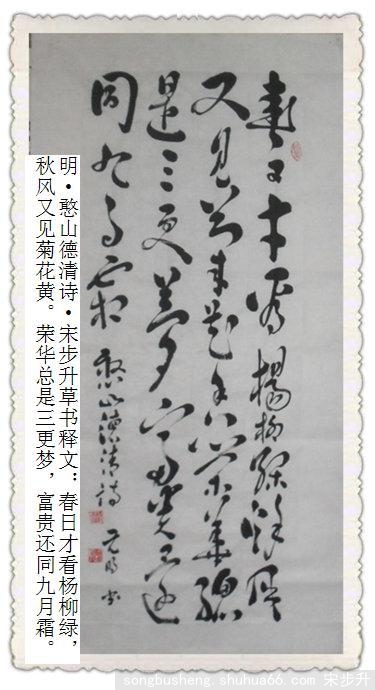 春日才看楊柳綠秋風
又見菊花黃榮華總
是三更夢富貴還
同九月霜 憨山德清詩
明·憨山德清诗·宋步升草书释文：春日才看杨柳绿，
秋风又见菊花黄。荣华总是三更梦，富贵还同九月霜。
songbusheng.shuhua66.com 宋步升